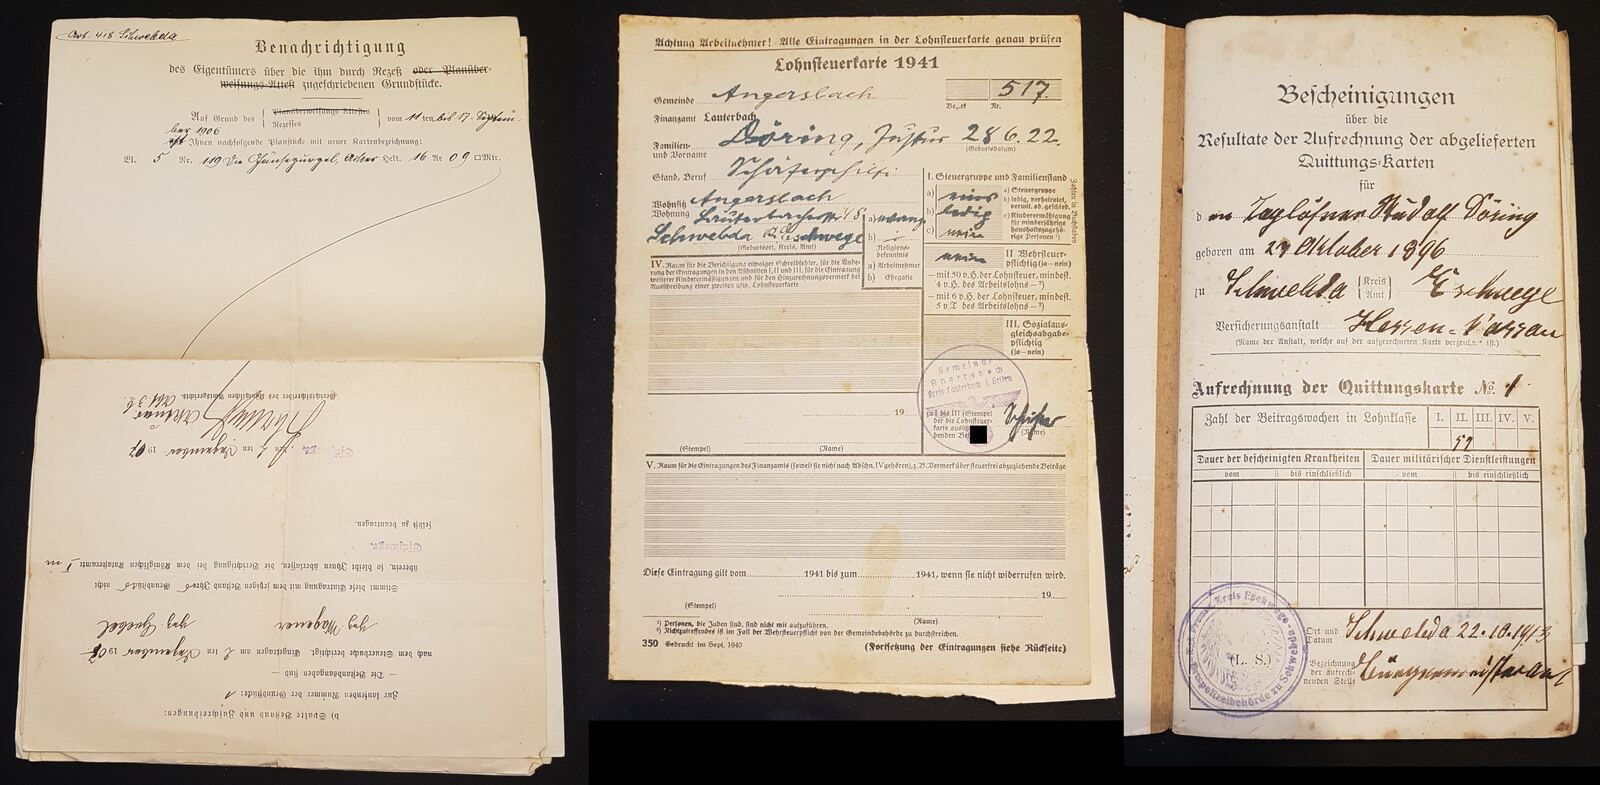 Art. 418 Schwebda
Benachrichtigung
des Eigentümers über die ihm durch Rezeß oder Planüber-
weisungs-Attest zugeschriebenen Grundstücke.
Auf Grund des Planüberweisungs-Attestes
Rezesses
vom 11 ten bis 17. Septem-
ber 1906
ist Ihnen nachfolgende Planstücke mit neuer Kartenbezeichnung:
Bl. 5 Nr. 119 Die Gänsegurgel, Acker Hekt. 16 Ar 09 □Mtr.
b) Spalte Bestand und Zuschreibungen:
Zur laufenden Nummer der Grundstücke: 1
— Die Bestandsangaben sind —
nach dem Steuerbuche berichtigt. Eingegangen den 2 ten Dezember 1907
gez. Wagener gez. Goebel
Stimmt diese Eintragung mit dem letzigen Bestand Ihres Grundbuchs nicht
überein, so bleibt Ihnen überlassen, die Berichtigung bei dem Königlichen Katasteramte I in
Eschwege
selbst zu beantragen.
Eschwege, den 7 ten Dezember 1907
Gerichtsschreiber des Königlichen Amtsgerichts.
Achtung Arbeitnehmer! Alle Eintragungen in der Lohnsteuerkarte genau prüfen
Lohnsteuerkarte 1941
Gemeinde Angersbach
Bezirk Nr. 517.
Finanzamt Lauterbach
Familien-
und Vorname
Döring, Justus 28.6.22.
(Geburtsdatum)
Stand, Beruf Schäfergehilfe
Wohnsitz Angersbach
Wohnung Lauterbacherstr 48
Schwebda Kr. Eschwege
(Geburtsort, Kreis, Amt)
a) evang
b) —
Religions-
bekenntnis
a) Arbeitnehmer
b) Ehegatte
I. Steuergruppe und Familienstand
a) eins
b) ledig
c) nein
a) Steuergruppe
b) ledig, verheiratet,
verwit. od. geschied.
c) Kinderermäßigung
für minderjährige
haushaltszugehö-
rige Personen ¹)
Zahlen in Buchstaben
nein
II Wehrsteuer-
pflichtig (ja — nein)
— mit 50 v. H. der Lohnsteuer, mindest.
4 v. H. des Arbeitslohns — ²)
— mit 6 v. H. der Lohnsteuer, mindest.
5 v. T. des Arbeitslohns — ²)
III. Sozialaus-
gleichsabgabe-
pflichtig
(ja — nein)
IV. Raum für die Berichtigung etwaiger Schreibfehler, für die Ände-
rung der Eintragungen in den Abschnitten I, II und III, für die Eintragung
weiterer Kinderermäßigungen und für den Hinzurechnungsvermerk bei
Ausschreibung einer zweiten usw. Lohnsteuerkarte
Gemeinde
Angersbach
Kreis Lauterbach i. Hessen
19
(Stempel) (Name)
(Name)
V. Raum für die Eintragungen des Finanzamts (soweit sie nicht nach Abschn. IV gehören), z. B. Vermerk über steuerfrei abzuziehende Beträge
Diese Eintragung gilt vom 1941 bis zum 1941, wenn sie nicht widerrufen wird.
19
(Stempel) (Name)
¹) Personen, die Juden sind, sind nicht mit aufzuführen.
²) Nichtzutreffendes ist im Fall der Wehrsteuerpflicht von der Gemeindebehörde zu durchstreichen.
350 Gedruckt im Sept. 1940 (Fortsetzung der Eintragungen siehe Rückseite)
Bescheinigungen
über die
Resultate der Aufrechnung der abgelieferten
Quittungs-Karten
für
den Taglöhner Rudolf Döring
geboren am 27 Oktober 1896
zu Schwebda Kreis
Amt Eschwege
Versicherungsanstalt Hessen-Nassau
(Name der Anstalt, welche auf der aufgerechneten Karte verzeichnet ist.)
Aufrechnung der Quittungskarte No. 1
Zahl der Beitragswochen in Lohnklasse I. II. III. IV. V.
52
Dauer der bescheinigten Krankheiten Dauer militärischer Dienstleistungen
vom bis einschließlich vom bis einschließlich
Kreis Eschwege
Ortspolizeibehörde zu Schwebda
(L. S.)
Ort und
Datum
Schwebda 22.10.1913
Bezeichnung
der aufrech-
nenden Stelle
Bürgermeisteramt